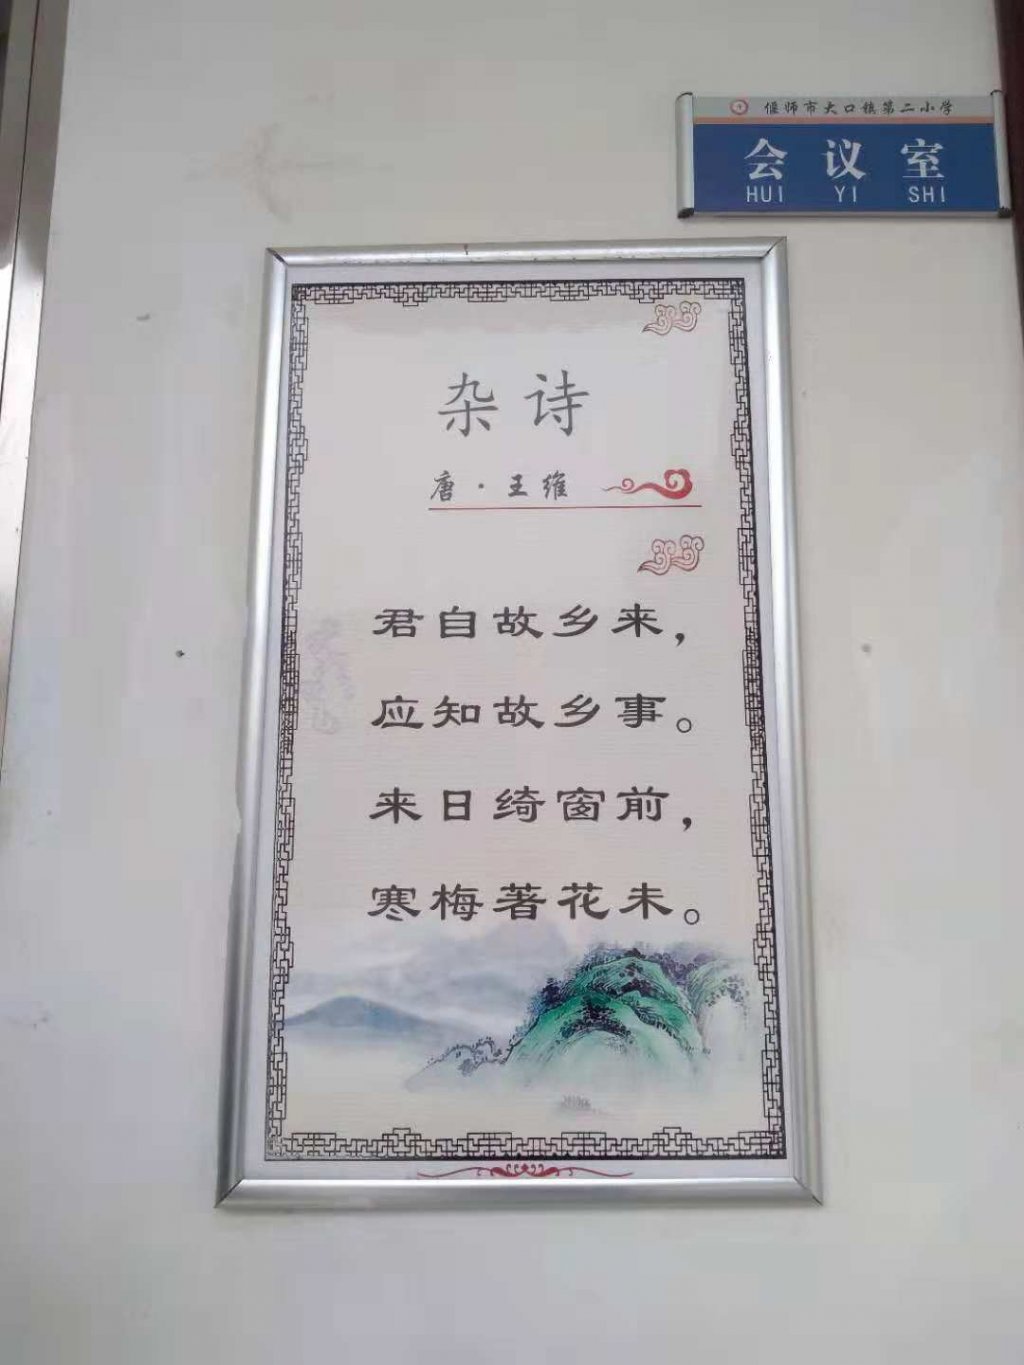 偃师市大口镇第二小学
会议室
HUI YI SHI
杂诗
唐·王维
君自故乡来，
应知故乡事。
来日绮窗前，
寒梅著花未。